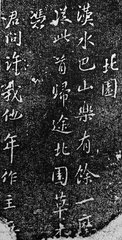 北園
漢水巴山樂有餘一麾
從此首歸途北園草木
憑
君問許我他年作主